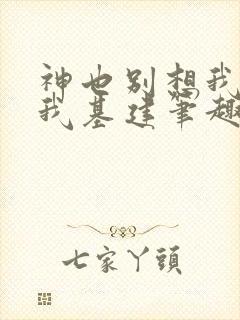 神也别想我
我基建笔趣
七家丫頭